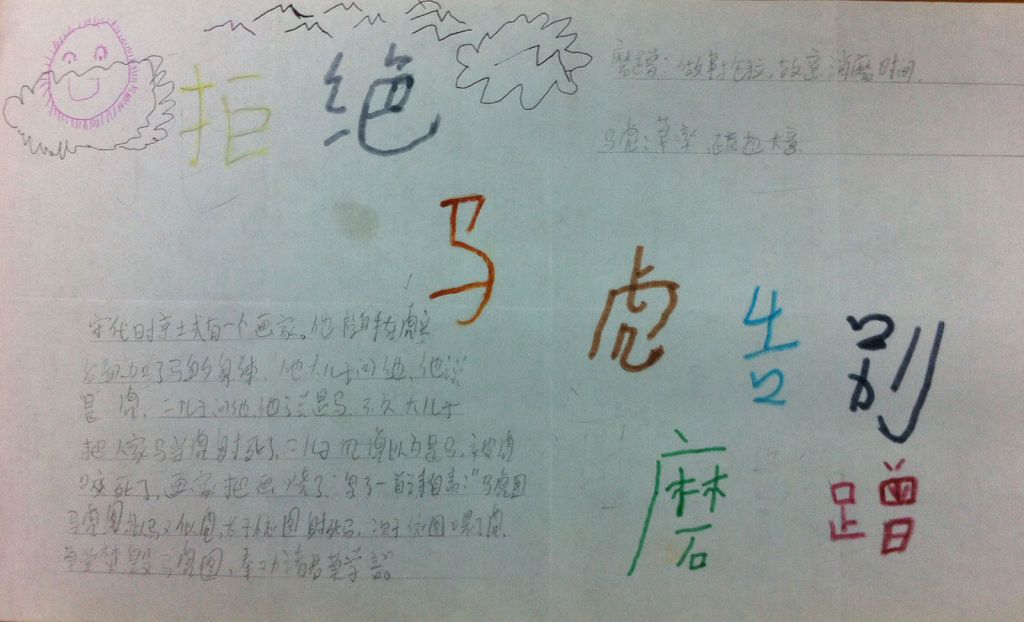 拒绝
马虎告别
磨蹭
磨蹭：做事拉，故意消磨时间。
马虎：草率，疏忽大意
宋代时京城有一个画家。他随身在虎头
后面加了马的身体，他大儿子问他，他说
是虎，二儿子问他，他说是马，不久大儿子
把人家马当虎射死了，二儿子把虎以为是马，被虎
咬死了，画家把画烧了，写了一首诗自责："马虎图
马虎图，似马又似虎，长子依图射死马，次子依图喂了虎，
草堂焚毁马虎图，奉劝诸君莫学吾。